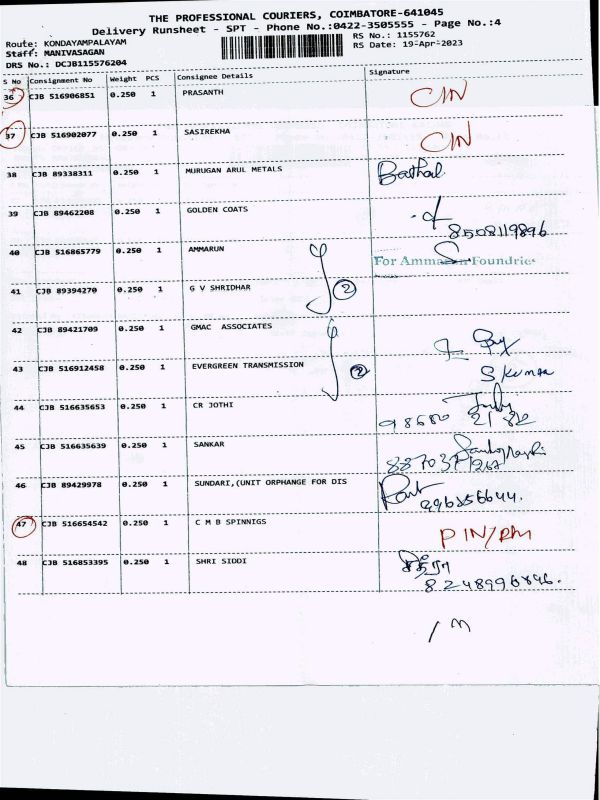 THE PROFESSIONAL COURIERS, COIMBATORE-641045
Delivery Runsheet - SPT - Phone No.:0422-3505555 - Page No.:4
Route: KONDAYAMPALAYAM
RS No.: 1155762
Staff: MANIVASAGAN
RS Date: 19-Apr-2023
DRS No.: DCJB115576204
S No Consignment No Weight PCS Consignee Details Signature
36 CJB 516906851 0.250 1 PRASANTH CIN
37 CJB 516902077 0.250 1 SASIREKHA CIN
38 CJB 89338311 0.250 1 MURUGAN ARUL METALS
39 CJB 89462208 0.250 1 GOLDEN COATS
8508119896
40 CJB 516865779 0.250 1 AMMARUN
For Ammarun Foundries
41 CJB 89394270 0.250 1 G V SHRIDHAR 2
42 CJB 89421709 0.250 1 GMAC ASSOCIATES
43 CJB 516912458 0.250 1 EVERGREEN TRANSMISSION 2 S Kumar
44 CJB 516635653 0.250 1 CR JOTHI
45 CJB 516635639 0.250 1 SANKAR
46 CJB 89429978 0.250 1 SUNDARI,(UNIT ORPHANGE FOR DIS
47 CJB 516654542 0.250 1 C M B SPINNIGS PIN/RM
48 CJB 516853395 0.250 1 SHRI SIDDI
8248996846.